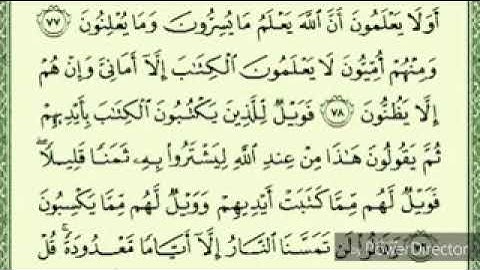 أَوَلَا يَعْلَمُونَ أَنَّ ٱللَّهَ يَعْلَمُ مَا يُسِرُّونَ وَمَا يُعْلِنُونَ ٧٧
وَمِنْهُمْ أُمِّيُّونَ لَا يَعْلَمُونَ ٱلْكِتَٰبَ إِلَّآ أَمَانِىَّ وَإِنْ هُمْ
إِلَّا يَظُنُّونَ ٧٨ فَوَيْلٌ لِّلَّذِينَ يَكْتُبُونَ ٱلْكِتَٰبَ بِأَيْدِيهِمْ
ثُمَّ يَقُولُونَ هَٰذَا مِنْ عِندِ ٱللَّهِ لِيَشْتَرُوا۟ بِهِۦ ثَمَنًا قَلِيلًا ۖ
فَوَيْلٌ لَّهُم مِّمَّا كَتَبَتْ أَيْدِيهِمْ وَوَيْلٌ لَّهُم مِّمَّا يَكْسِبُونَ
لَن تَمَسَّنَا ٱلنَّارُ إِلَّآ أَيَّامًا مَّعْدُودَةً ۚ قُلْ
PowerDirector